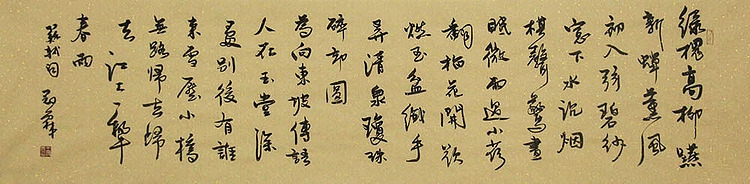 綠槐高柳嚥
新蟬薰风
初入弦碧紗
窓下水沉烟
棋聲驚晝
眠微雨過小荷
翻榴花開欲
燃玉盆纖手
弄清泉瓊珠
碎却圆
為向東坡傳語
人在玉堂深
處别後有誰
來雪壓小橋
無路歸去歸
去江上一犂
春雨
蘇軾詞